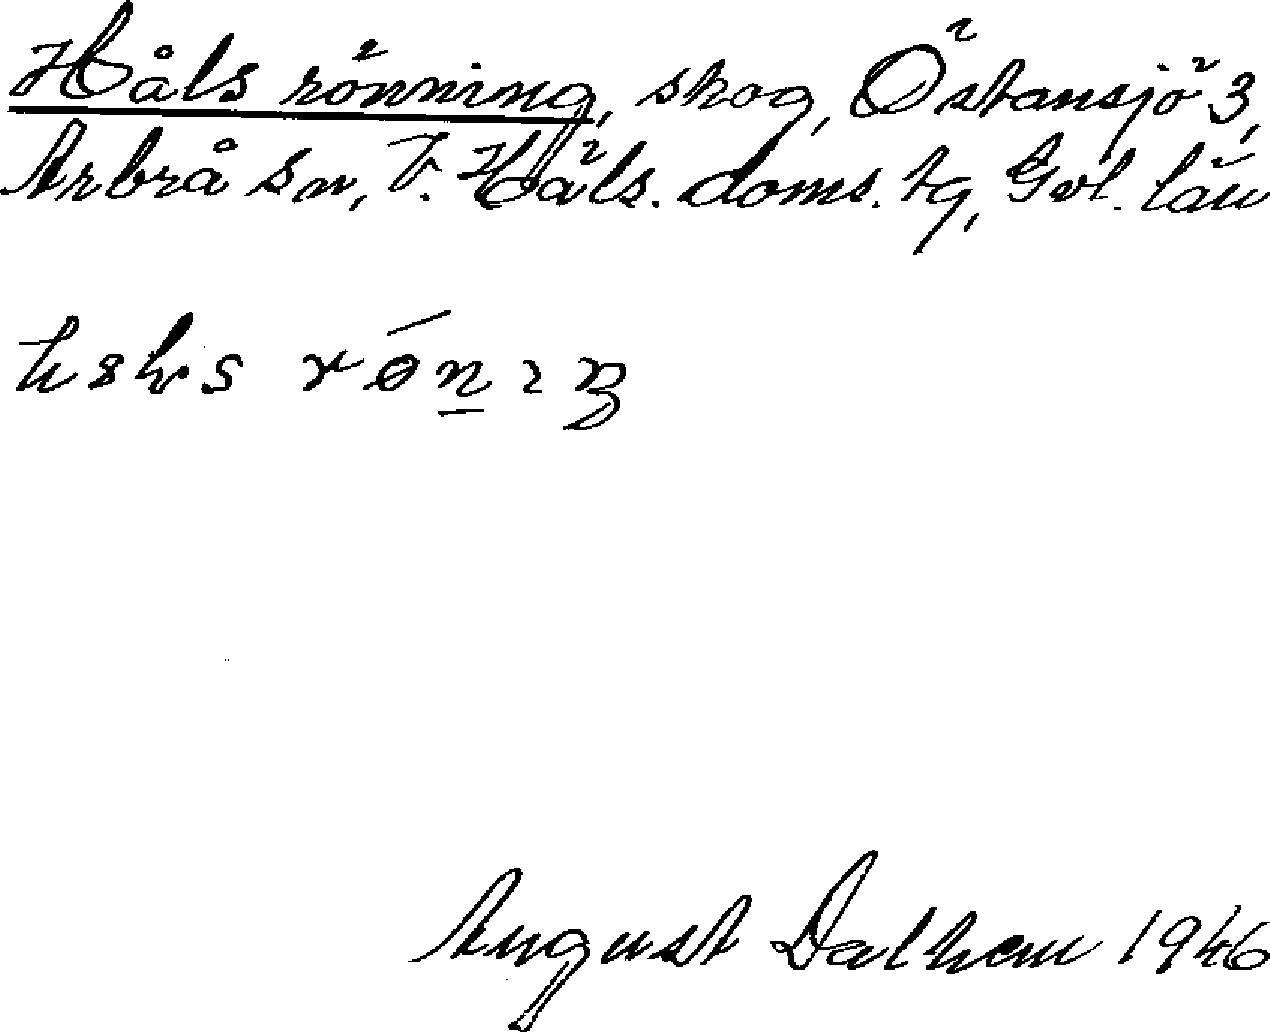 Håls rönning, skog, Östansjö 3,
Arbrå sn, V. Häls. doms. tg, Gvl. län
rón
August Dalhem 1946